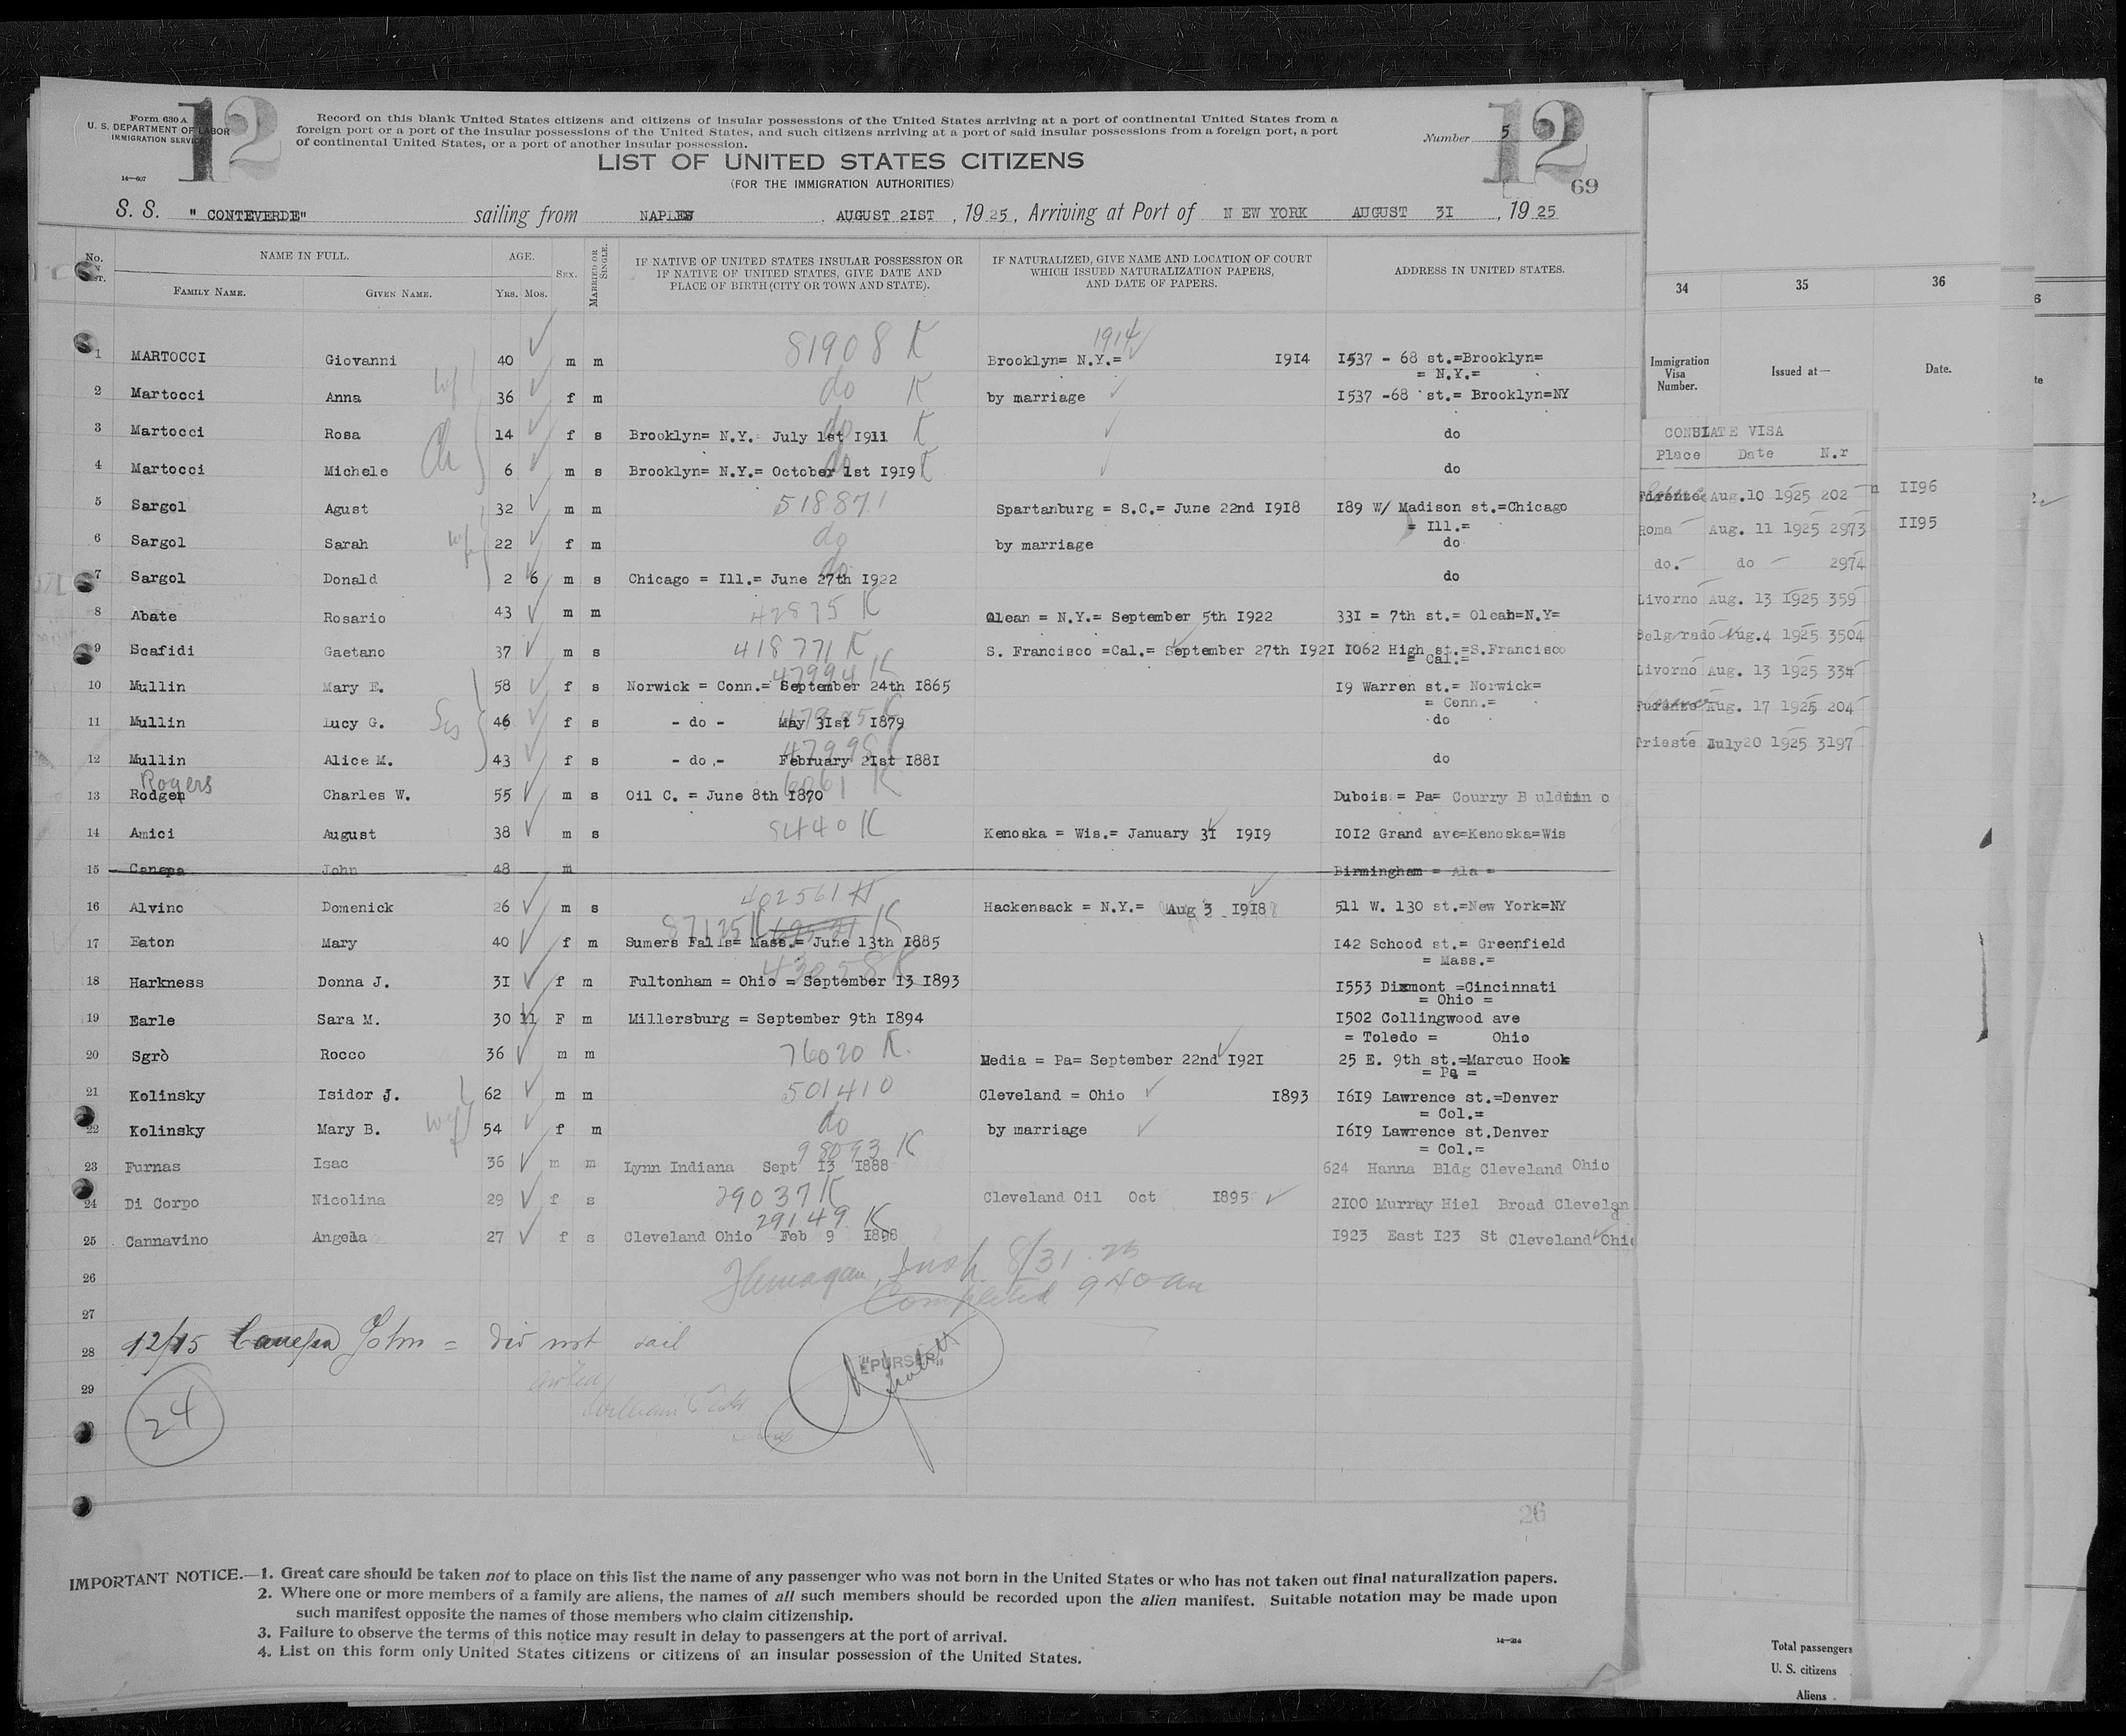 Form 630 A
U. S. DEPARTMENT OF LABOR
IMMIGRATION SERVICE
14—607
12
Record on this blank United States citizens and citizens of insular possessions of the United States arriving at a port of continental United States from a
foreign port or a port of the insular possessions of the United States, and such citizens arriving at a port of said insular possessions from a foreign port, a port
of continental United States, or a port of another insular possession.
LIST OF UNITED STATES CITIZENS
(FOR THE IMMIGRATION AUTHORITIES)
Number 5
12
69
S. S. " CONTEVERDE" sailing from NAPLES , AUGUST 2IST , 19 25 , Arriving at Port of N EW YORK AUGUST 3I , 19 25
No. NAME IN FULL. AGE. SEX. MARRIED OR SINGLE. IF NATIVE OF UNITED STATES INSULAR POSSESSION OR IF NATIVE OF UNITED STATES, GIVE DATE AND PLACE OF BIRTH (CITY OR TOWN AND STATE). IF NATURALIZED, GIVE NAME AND LOCATION OF COURT WHICH ISSUED NATURALIZATION PAPERS, AND DATE OF PAPERS. ADDRESS IN UNITED STATES.
FAMILY NAME. GIVEN NAME. YRS. MOS.
81908 K 1914
1 MARTOCCI Giovanni 40 m m Brooklyn= N.Y.= I9I4 I537 - 68 st.=Brooklyn=
= N.Y.=
2 Martocci Anna wf 36 f m do K by marriage I537 -68 st.= Brooklyn=NY
3 Martocci Rosa 14 f s Brooklyn= N.Y. July 1st I911 do K do
4 Martocci Michele Ch 6 m s Brooklyn= N.Y.= October 1st I9I9 do K do
5 Sargol Agust 32 m m 518871 Spartanburg = S.C.= June 22nd I9I8 I89 W/ Madison st.=Chicago
= Ill.=
6 Sargol Sarah wf 22 f m do by marriage do
7 Sargol Donald 2 6 m s Chicago = Ill.= June 27th I922 do do
8 Abate Rosario 43 m m 42875 K Olean = N.Y.= September 5th I922 33I = 7th st.= Olean=N.Y=
9 Scafidi Gaetano 37 m s 418771 K S. Francisco =Cal.= September 27th I92I I062 High st.=S.Francisco
= Cal.=
47994 K
10 Mullin Mary E. 58 f s Norwick = Conn.= September 24th I865 I9 Warren st.= Norwick=
= Conn.=
11 Mullin Lucy G. Sis 46 f s - do - May 31st I879 do
47998 K
12 Mullin Alice M. 43 f s - do - February 21st I88I do
Rogers 6061 K
13 Rodgen Charles W. 55 m s Oil C. = June 8th I870 Dubois = Pa= Courry B
14 Amici August 38 m s 5440 K Kenoska = Wis.= January 3I I9I9 I0I2 Grand ave=Kenoska=Wis
15 Canepa John 48 m Birmingham = Ala =
402561 K
16 Alvino Domenick 26 m s Hackensack = N.Y.= Aug 3 I9I8 5II W. I30 st.=New York=NY
87125 K K
17 Eaton Mary 40 f m Sumers Falls= Mass.= June 13th I885 I42 Schood st.= Greenfield
= Mass.=
43058 K
18 Harkness Donna J. 3I f m Fultonham = Ohio = September I3 I893 I553 Dixmont =Cincinnati
= Ohio =
19 Earle Sara M. 30 11 F m Millersburg = September 9th I894 I502 Collingwood ave
= Toledo = Ohio
20 Sgrò Rocco 36 m m 76020 K. Media = Pa= September 22nd I92I 25 E. 9th st.=Marcuo Hook
= Pa =
21 Kolinsky Isidor J. 62 m m 501410 Cleveland = Ohio I893 I6I9 Lawrence st.=Denver
= Col.=
22 Kolinsky Mary B. wf 54 f m do by marriage I6I9 Lawrence st.Denver
= Col.=
98093 K
23 Furnas Isac 36 m m Lynn Indiana Sept I3 I888 624 Hanna Bldg Cleveland Ohio
24 Di Corpo Nicolina 29 f s 29037 K Cleveland Oil Oct I895 2I00 Murray Hiel Broad Clevelan
d
29149 K
25 Cannavino Angela 27 f s Cleveland Ohio Feb 9 I898 I923 East I23 St Cleveland Ohio
26 8/31 25
27 Completed 940 am
28 12/15 Canepa John = did not sail
"PURSER"
29
24
26
IMPORTANT NOTICE.—1. Great care should be taken not to place on this list the name of any passenger who was not born in the United States or who has not taken out final naturalization papers.
2. Where one or more members of a family are aliens, the names of all such members should be recorded upon the alien manifest. Suitable notation may be made upon
such manifest opposite the names of those members who claim citizenship.
3. Failure to observe the terms of this notice may result in delay to passengers at the port of arrival.
4. List on this form only United States citizens or citizens of an insular possession of the United States.
14—214
34 35 36
Immigration Visa Number. Issued at— Date.
CONSULATE VISA
Place Date N.r
Aug.10 1925 202 II96
Roma Aug. 11 1925 2973 II95
do.- do - 2974
Livorno Aug. 13 1925 359
Belgrado Aug.4 1925 3504
Livorno Aug. 13 1925 334
Aug. 17 1925 204
Trieste July20 1925 3197
Total passengers
U. S. citizens
Aliens